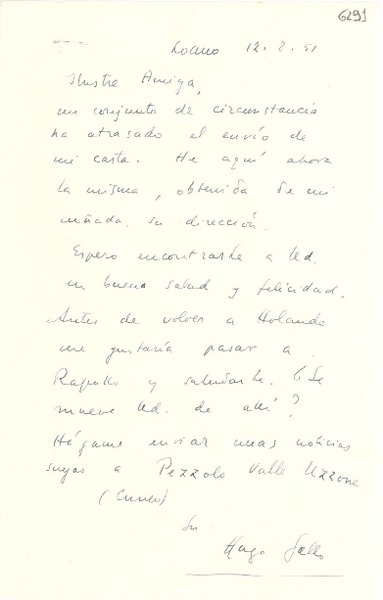 6291
Loano 12. 8. 51
Ilustre Amiga,
un conjunto de circunstancia
ha atrasado el envío de
mi carta. He aquí ahora
la misma, obtenida de mi
cuñada su dirección.
Espero encontrarle a Ud.
en buena salud y felicidad.
Antes de volver a Holanda
me gustaría pasar a
Rapallo y saludarle. ¿Se
mueve Ud. de allí?
Hágame enviar unas noticias
suyas a Pezzolo Valle Uzzone
(Cuneo)
Su
Hugo Gallo